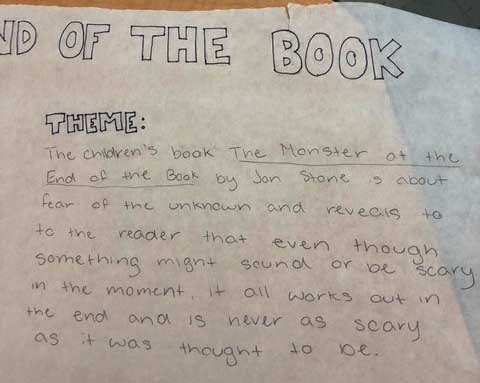 ND OF THE BOOK
THEME:
The children's book The Monster at the
End of the Book by Jon Stone s about
fear of the unknown and reveals to
to the reader that even though
something might sound or be scary
in the moment, it all works out in
the end and is never as scary
as it was thought to be.